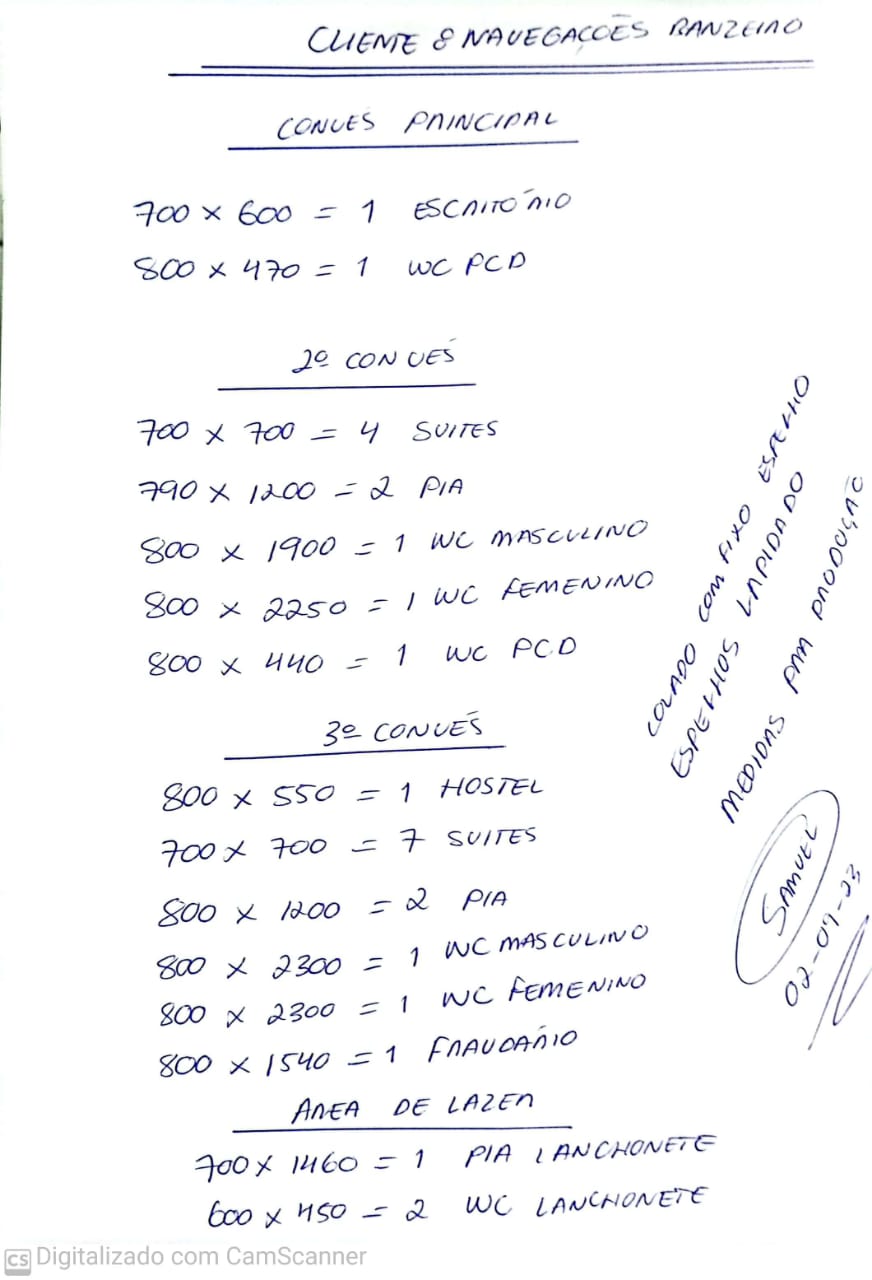 CLIENTE 8 NAVEGACÕES BANZEIRO
CONVÉS PRINCIPAL
700 x 600 = 1 ESCRITÓRIO
800 x 470 = 1 WC PCD
2º CONVÉS
700 x 700 = 4 SUITES
790 x 1200 = 2 PIA
800 x 1900 = 1 WC MASCULINO
800 x 2250 = 1 WC FEMENINO
800 x 440 = 1 WC PCD
3º CONVÉS
800 x 550 = 1 HOSTEL
700 x 700 = 7 SUITES
800 x 1200 = 2 PIA
800 x 2300 = 1 WC MASCULINO
800 x 2300 = 1 WC FEMENINO
800 x 1540 = 1 FRAUDÁRIO
AREA DE LAZER
700 x 1460 = 1 PIA LANCHONETE
600 x 450 = 2 WC LANCHONETE
COLADO COM FIXO ESPELHO
ESPELHOS LAPIDADO
MEDIDAS PRA PRODUÇÃO
SAMUEL
02-07-23
CS Digitalizado com CamScanner